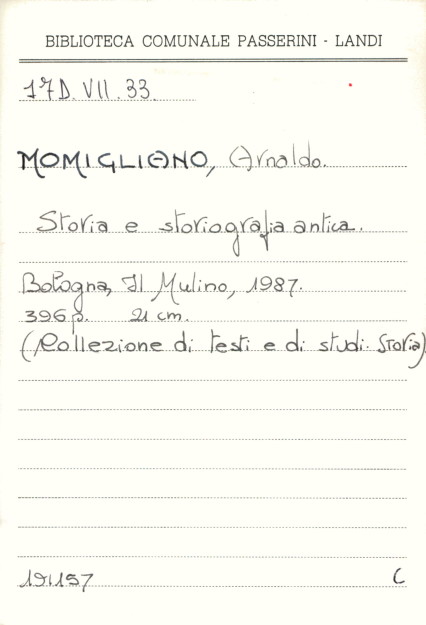 BIBLIOTECA COMUNALE PASSERINI - LANDI
17D.VII.33.
MOMIGLIANO, Arnaldo.
Storia e storiografia antica.
Bologna, Il Mulino, 1987.
396 p. 21 cm.
(Collezione di testi e di studi. Storia)
191157 C